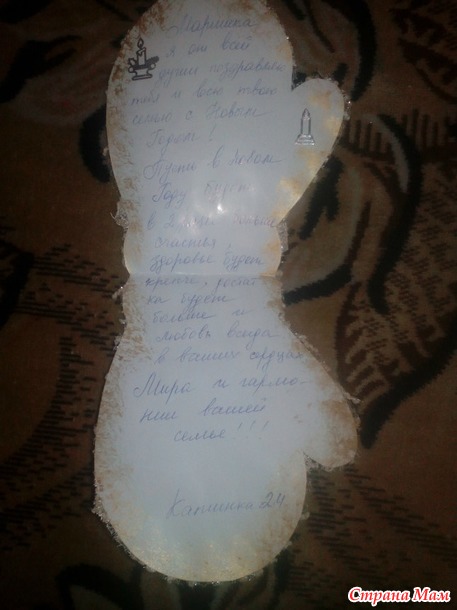 Маришка
я от всей
души поздравляю
тебя и всю твою
семью с Новым
Годом!
Пусть в Новом
Году будет
в 2 раза больше
счастья,
здоровье будет
крепче, 
ка будет
больше и
любовь всегда
в ваших сердцах
Мира и гармо-
нии вашей
семье!!!
Капинка 24.
Страна Мам